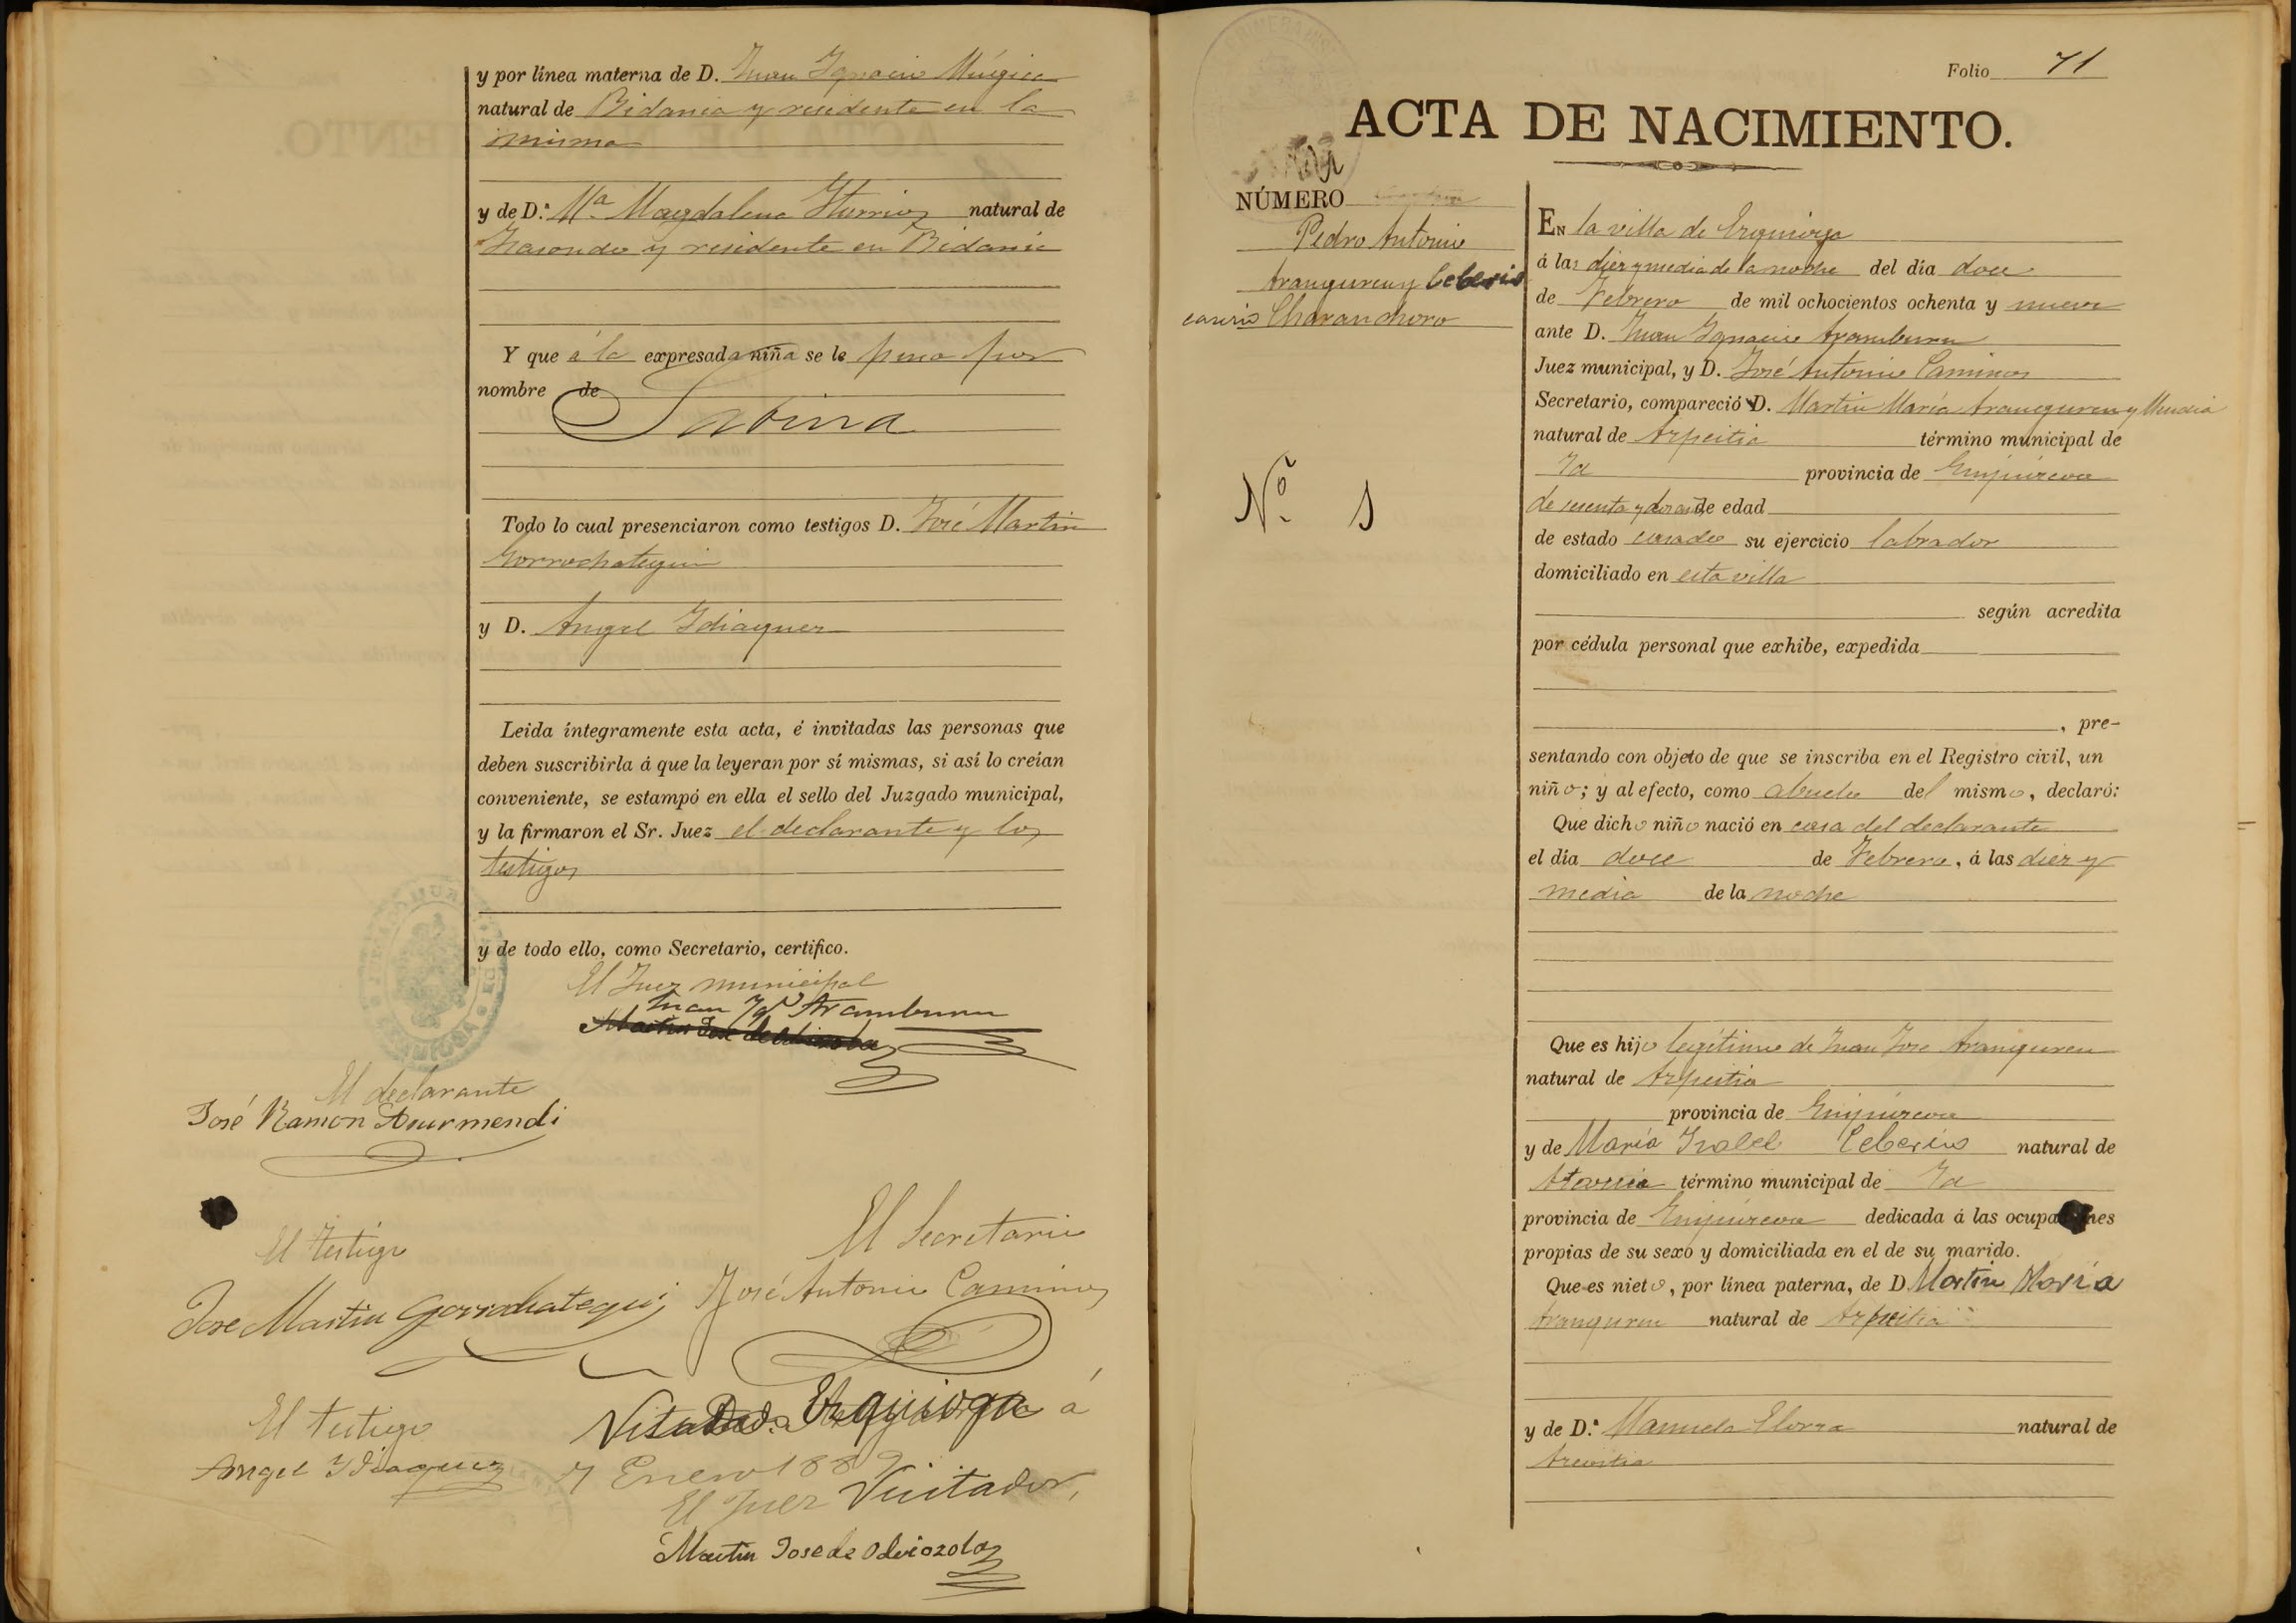 y por línea materna de D. Juan Ignacio Múgica
natural de Bidania y residente en la
misma
y de D.ª M.ª Magdalena Iturrioz natural de
y residente en Bidania
Y que á la expresada niña se le puso por
nombre de
Sabina
Todo lo cual presenciaron como testigos D. José Martin
Gorrochategui
y D. Angel Idiaquez
Leida íntegramente esta acta, é invitadas las personas que
deben suscribirla á que la leyeran por sí mismas, si así lo creían
conveniente, se estampó en ella el sello del Juzgado municipal,
y la firmaron el Sr. Juez el declarante y los
testigos
y de todo ello, como Secretario, certifico.
El Juez municipal
Juan Ig.º Aramburu
El declarante
José Ramon Azurmendi
El testigo
Jose Martin Gorrochategui
El Secretario
José Antonio Caminos
El testigo
Angel Ydiaquez
Ezquioga á
7 Enero 1889
El Juez Visitador,
Martin Jose de Odriozola
Folio 71
ACTA DE NACIMIENTO.
NÚMERO
Pedro Antonio
Aranguren y Ceberio
caserio Charanchoro
Nº 1
EN la villa de Ezquioga
á las diez y media de la noche del día doce
de Febrero de mil ochocientos ochenta y nueve
ante D. Juan Ignacio Aramburu
Juez municipal, y D. José Antonio Caminos
Secretario, compareció D. Martin María Aranguren y Mendia
natural de Azpeitia término municipal de
Id provincia de Guipúzcoa
de edad
de estado casado su ejercicio labrador
domiciliado en esta villa
según acredita
por cédula personal que exhibe, expedida
, pre-
sentando con objeto de que se inscriba en el Registro civil, un
niño; y al efecto, como abuelo del mismo, declaró:
Que dicho niño nació en casa del declarante
el día doce de Febrero, á las diez y
media de la noche
Que es hijo legítimo de Juan Jose Aranguren
natural de Azpeitia
provincia de Guipúzcoa
y de María Isabel Ceberio natural de
Ataun término municipal de Id
provincia de Guipúzcoa dedicada á las ocupaciones
propias de su sexo y domiciliada en el de su marido.
Que es nieto, por línea paterna, de D. Martin María
Aranguren natural de Azpeitia
y de D.ª Manuela Elorza natural de
Azcoitia